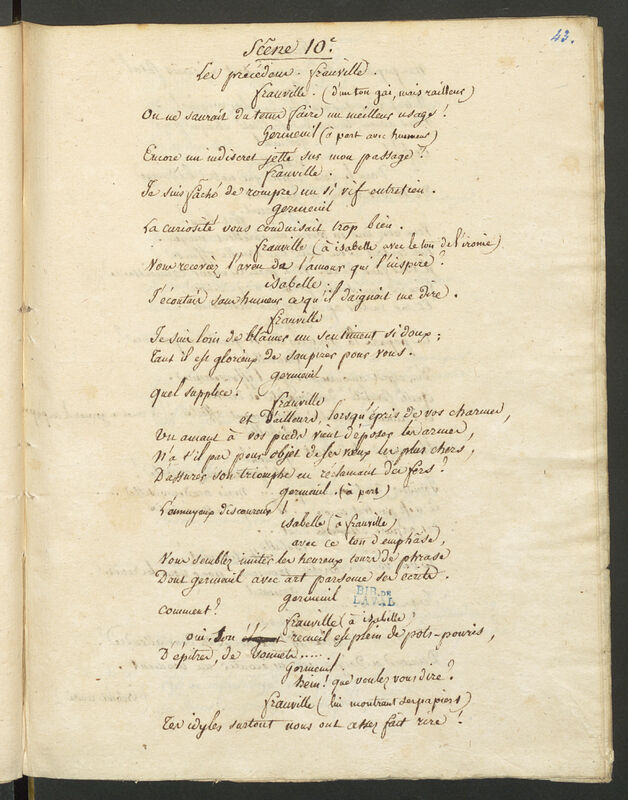 43.
Scène 10.e
Les précédens. frauville.
frauville. (d'un ton gai, mais railleur)
On ne saurait du tems faire un meilleur usage !
Germeuil (à part avec humeur)
Encore un indiscret jetté sur mon passage ?
frauville.
Je suis fâché de rompre un si vif entretien.
germeuil
La curiosité vous conduisait trop bien.
frauville (à isabelle avec le ton de l'ironie)
Vous receviez l'aveu de l'amour qu'il inspire ?
isabelle.
J'écoutais sans humeur ce qu'il daignait me dire.
frauville
Je suis loin de blâmer un sentiment si doux ;
Tant il est glorieux de soupirer pour vous.
germeuil
Quel supplice !
frauville
et d'ailleurs, lorsqu'épris de vos charmes,
Un amant à vos pieds vient déposer les armes,
N'a t'il pas pour objet de ses vœux les plus chers,
D'assurer son triomphe en réclamant des fers ?
germeuil. (à part)
L'ennuyeux discoureur !
isabelle (à frauville)
avec ce ton d'emphâse,
Vous semblez imiter les heureux tours de phrase
Dont germeuil avec art parseme ses écrits.
BIB. DE LAVAL
germeuil
comment ?
frauville (à isabelle)
oui, son recueil est plein de pots-pouris,
D'épitres, de sonnets.....
Germeuil.
hein ! que voulez vous dire ?
frauville (lui montrant ses papiers)
Tes idyles surtout nous ont assez fait rire !